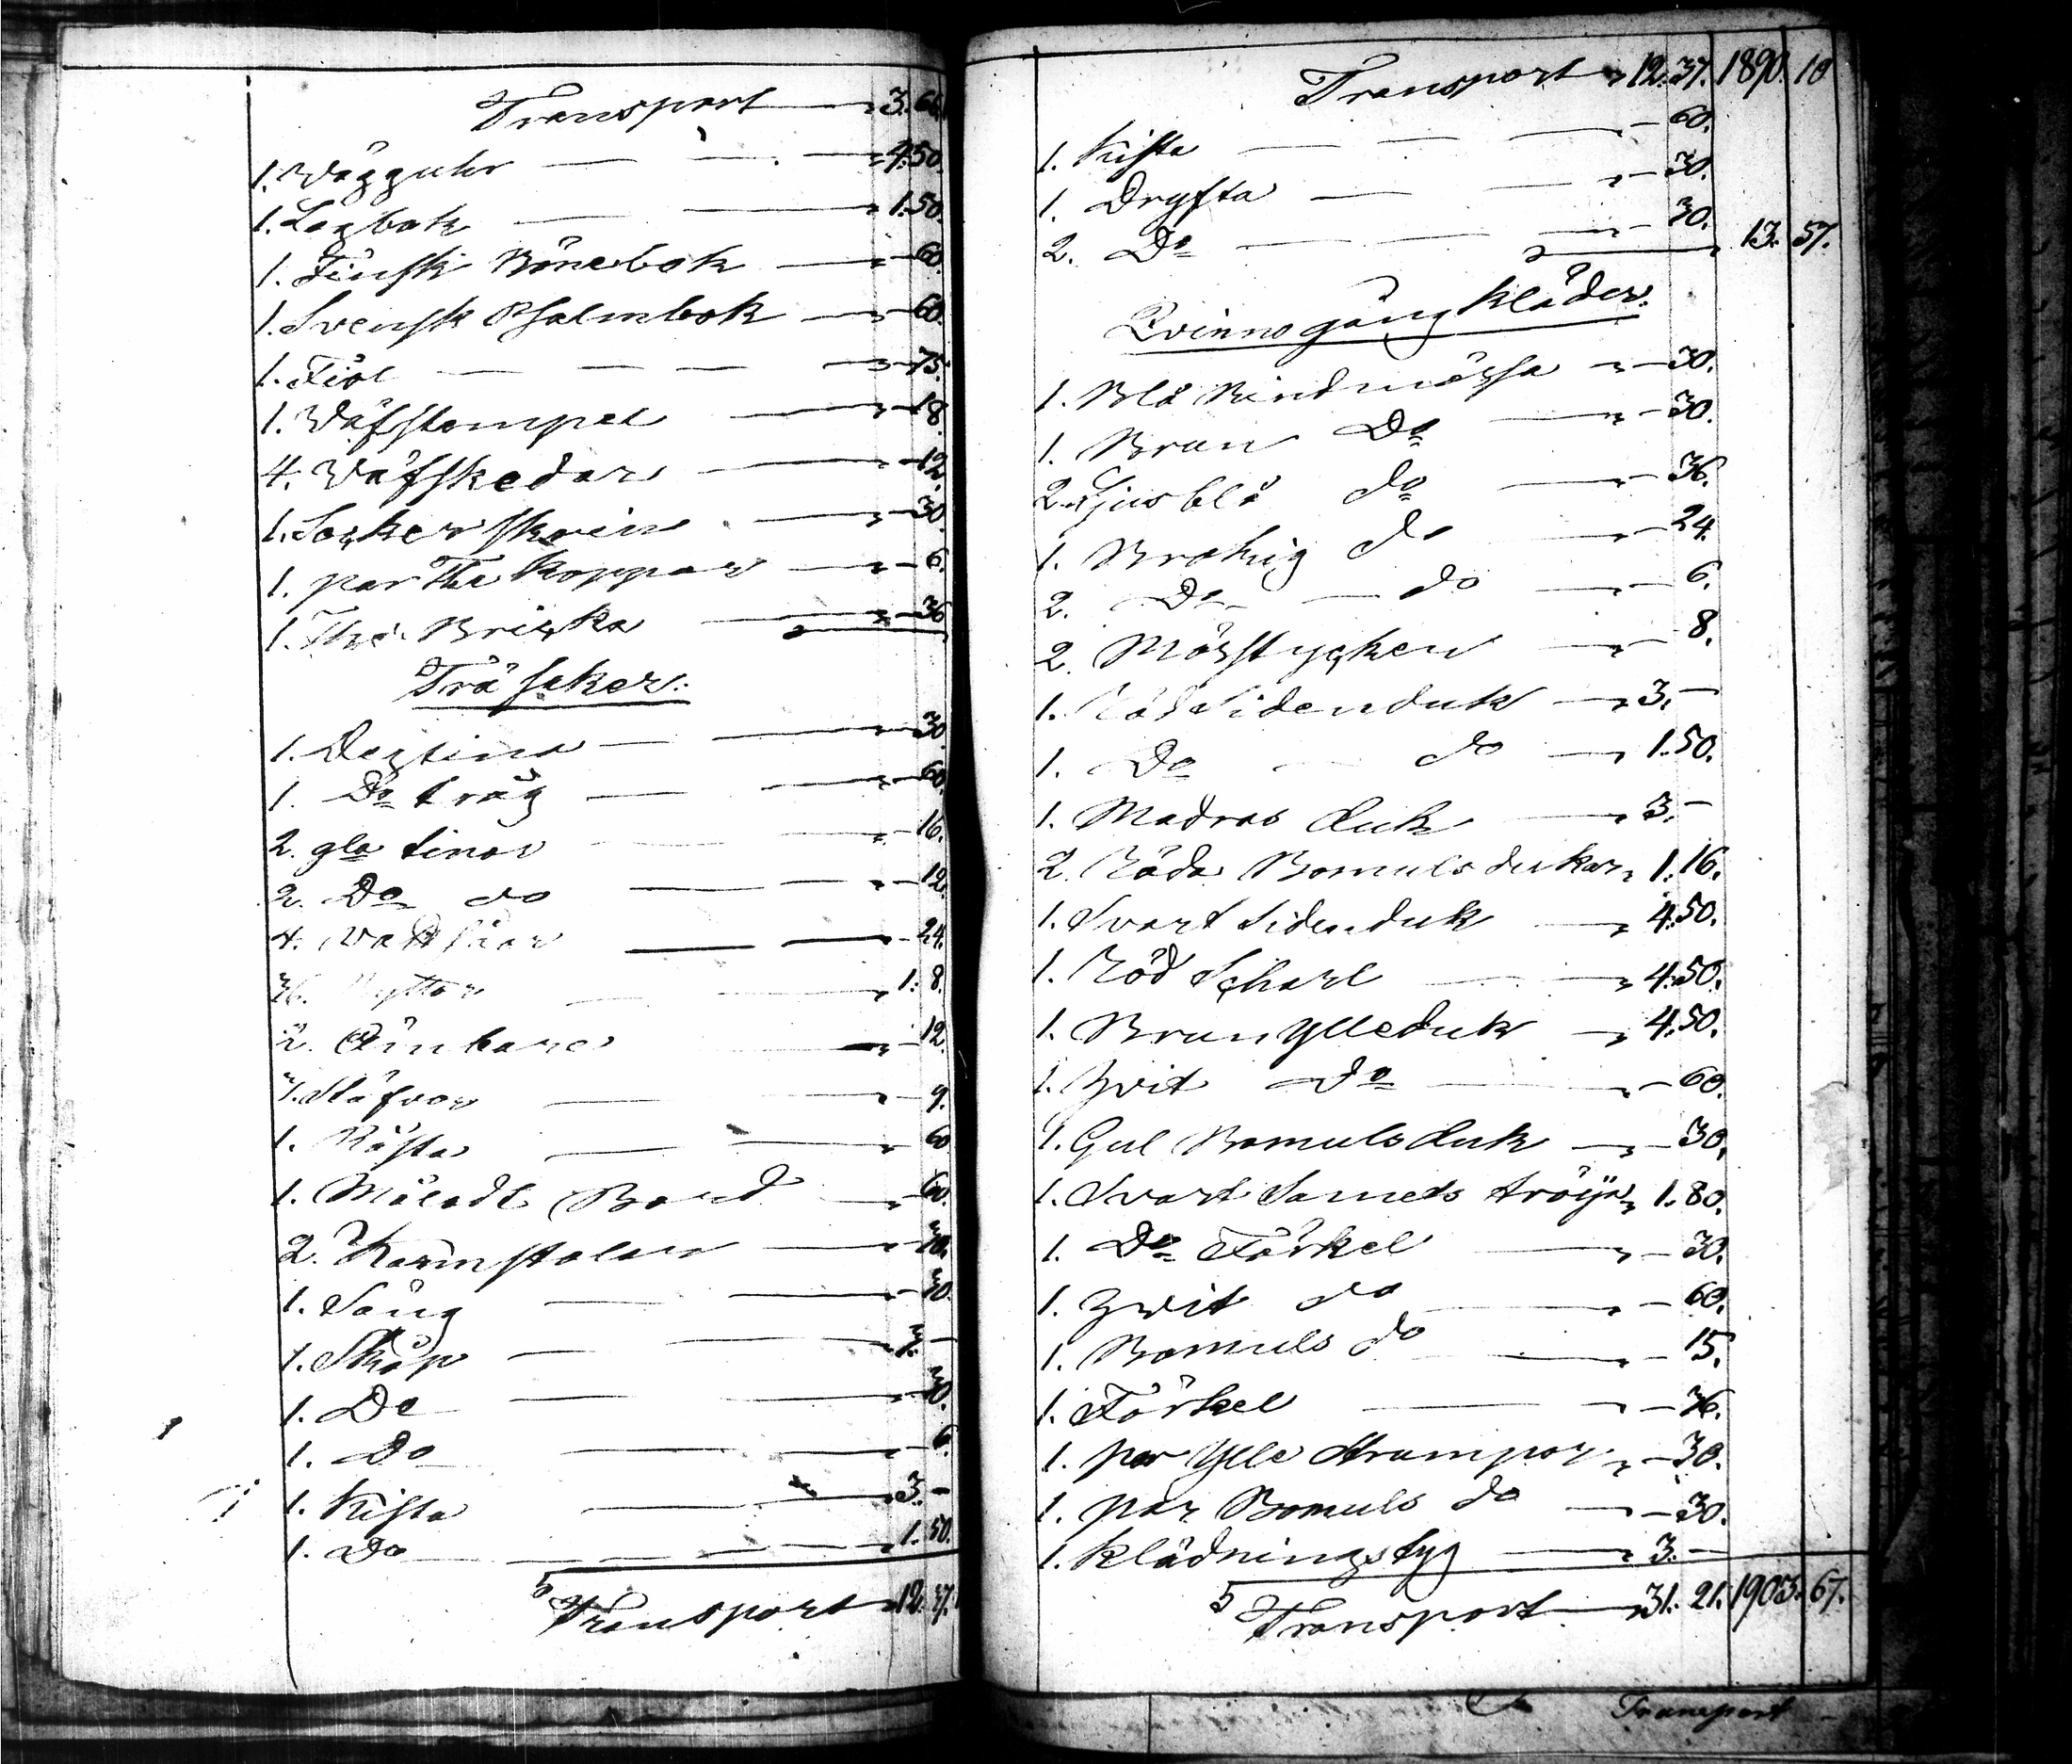 Transport 3. 66.
1. Wägguhr 4. 50.
1. Lagbok 1. 50.
1. Finsk Bönebok — 60.
1. Svensk Psalmbok — 60.
1. Fiol — 75.
1. Wäfstempel — 18.
4. Wäfskedar — 12.
1. Sockerskrin — 30.
1. par The koppar — 6.
1. The Bricka — 36
Träsaker:
1. Degtina — 30.
1. Do tråg — 60.
2. gla tinor — 16.
2. Do do — 12.
4. — 24.
36. Byttor 1. 8.
2. Ämbare — 12.
— 9.
1. — 60
1. Måladt Bord — 60.
2. Karmstolar — 30.
1. Säng — 30.
1. Skåp 3. —
1. Do — 30.
1. Do — 6.
1. Kista 3. —
1. Do 1. 50.
Transport 12. 37.
Transport 12. 37. 1890. 10
1. Kista — 60.
1. Dryfta — 30.
2. Do — 30. 13. 57.
Qvinno gång kläder:
1. Blå Bindmössa — 30.
1. Brun Do — 30.
2. Ljusblå do — 36.
1. Brokig do — 24.
2. Do do — 6.
2. Mösstycken — 8.
1. Röd Sidenduk 3. —
1. Do do 1. 50.
1. Madras duk 3. —
2. Röda Bomuls dukar 1. 16.
1. Svart Sidenduk 4. 50.
1. Röd Scharl 4. 50.
1. Brun Ylleduk 4. 50.
1. Hvit Do — 60.
1. Gul Bomuls duk — 30.
1. Svart Samets tröija 1. 80.
1. Do Förkel — 30.
1. Hvit do — 60.
1. Bomuls do — 15.
1. Förkel — 36.
1. par Ylle strumpor — 30.
1. par Bomuls do — 30.
1. Klädningstyg 3. —
Transport 31. 21. 1903. 67.
Transport